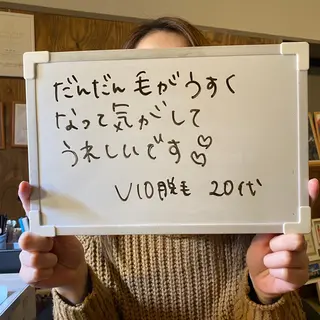 だんだん毛がうすく
なって気がして
うれしいです♡♡
VIO脱毛 20代